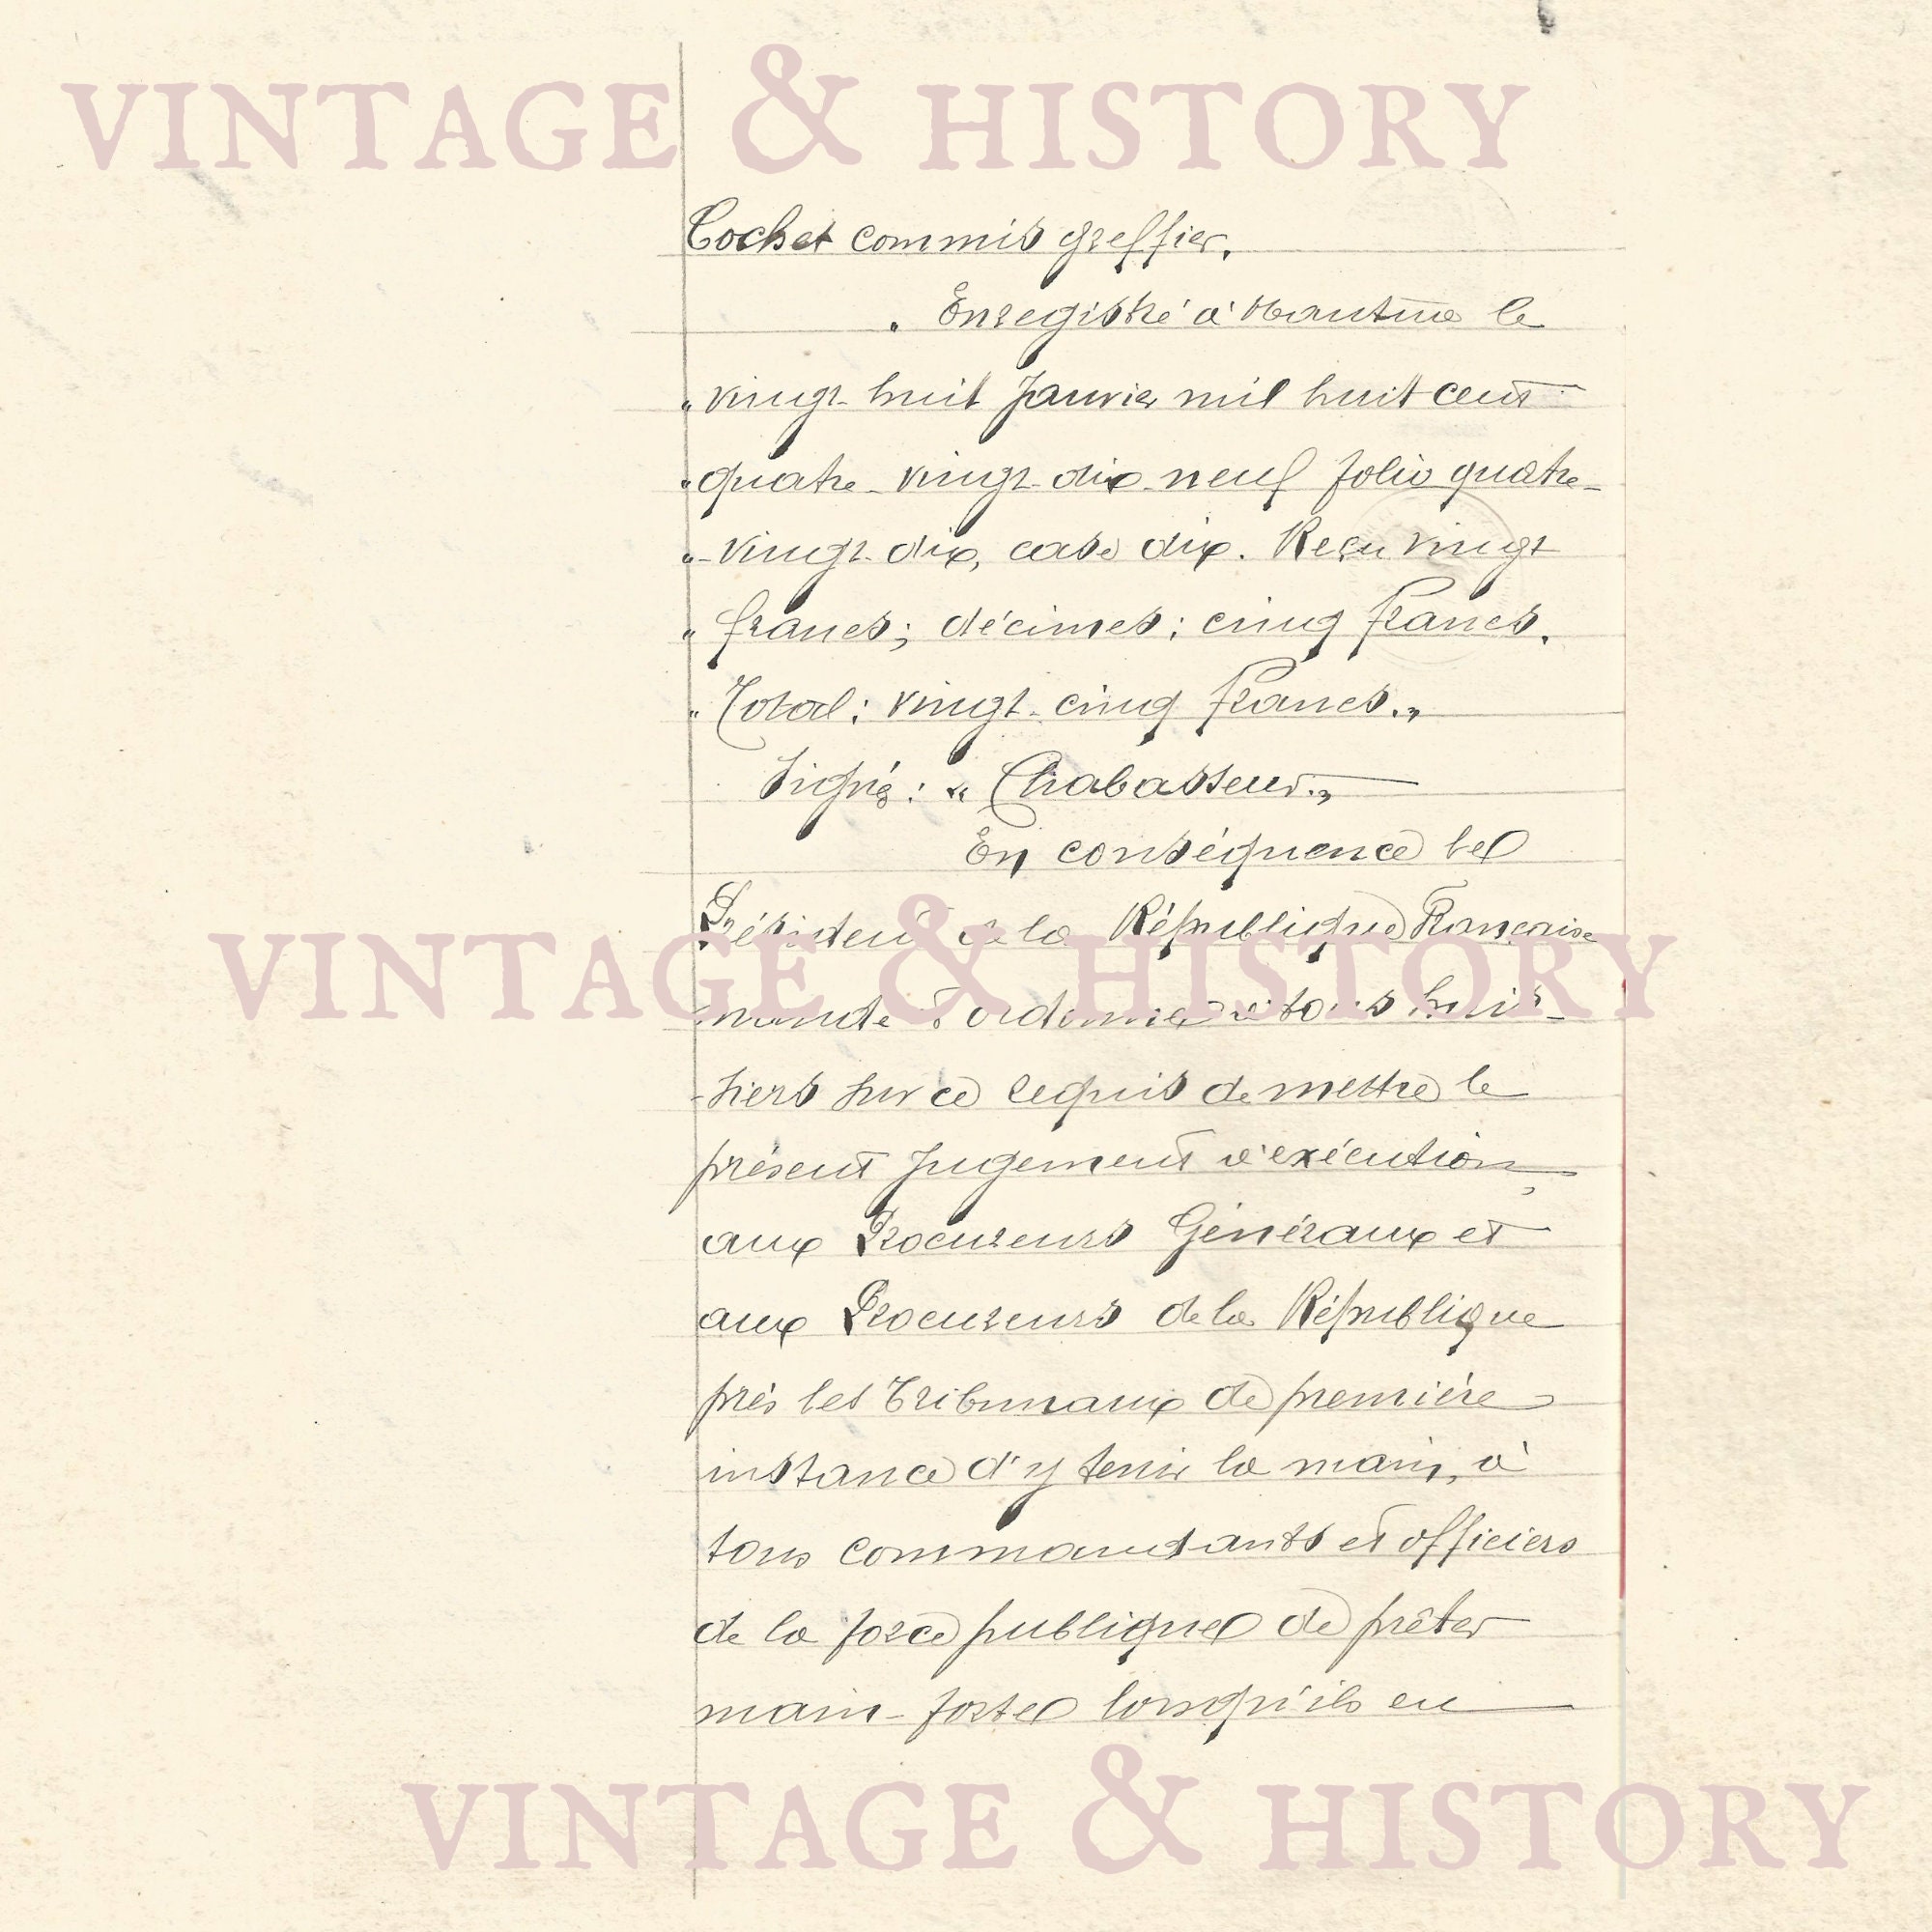 VINTAGE & HISTORY
Cochet commis greffier.
„ Enregistré à Nantua le
„ vingt-huit Janvier mil huit cent
„ quatre-vingt-dix-neuf folio quatre-
„ -vingt-dix, case dix. Reçu vingt
„ francs; décimes: cinq francs.
„ Total: vingt-cinq francs.„
Signé: „ Chabasseur.„
En conséquence le
Président de la République Française
mande & ordonne à tous huis-
-siers sur ce requis de mettre le
présent Jugement à exécution,
aux Procureurs Généraux et
aux Procureurs de la République
près les Tribunaux de première
instance d'y tenir la main, à
tous commandants et officiers
de la force publique de prêter
main-forte lorsqu'ils en
VINTAGE & HISTORY
VINTAGE & HISTORY